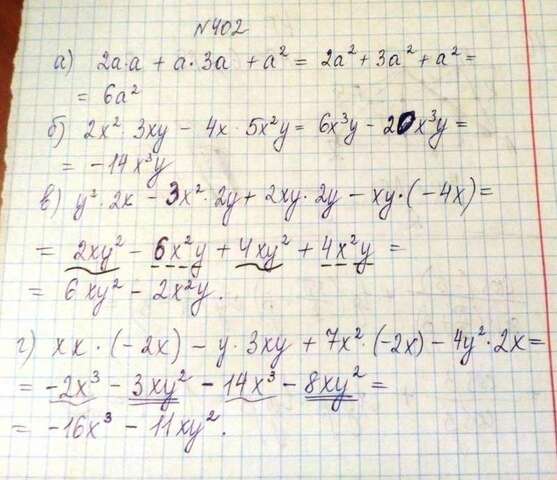 №402
а) 2a·a + a·3a + a² = 2a² + 3a² + a² =
= 6a²
б) 2x²·3xy - 4x·5x²y = 6x³y - 20x³y =
= -14x³y
в) y²·2x - 3x²·2y + 2xy·2y - xy·(-4x) =
= 2xy² - 6x²y + 4xy² + 4x²y =
= 6xy² - 2x²y.
г) xx·(-2x) - y·3xy + 7x²·(-2x) - 4y²·2x =
= -2x³ - 3xy² - 14x³ - 8xy² =
= -16x³ - 11xy².